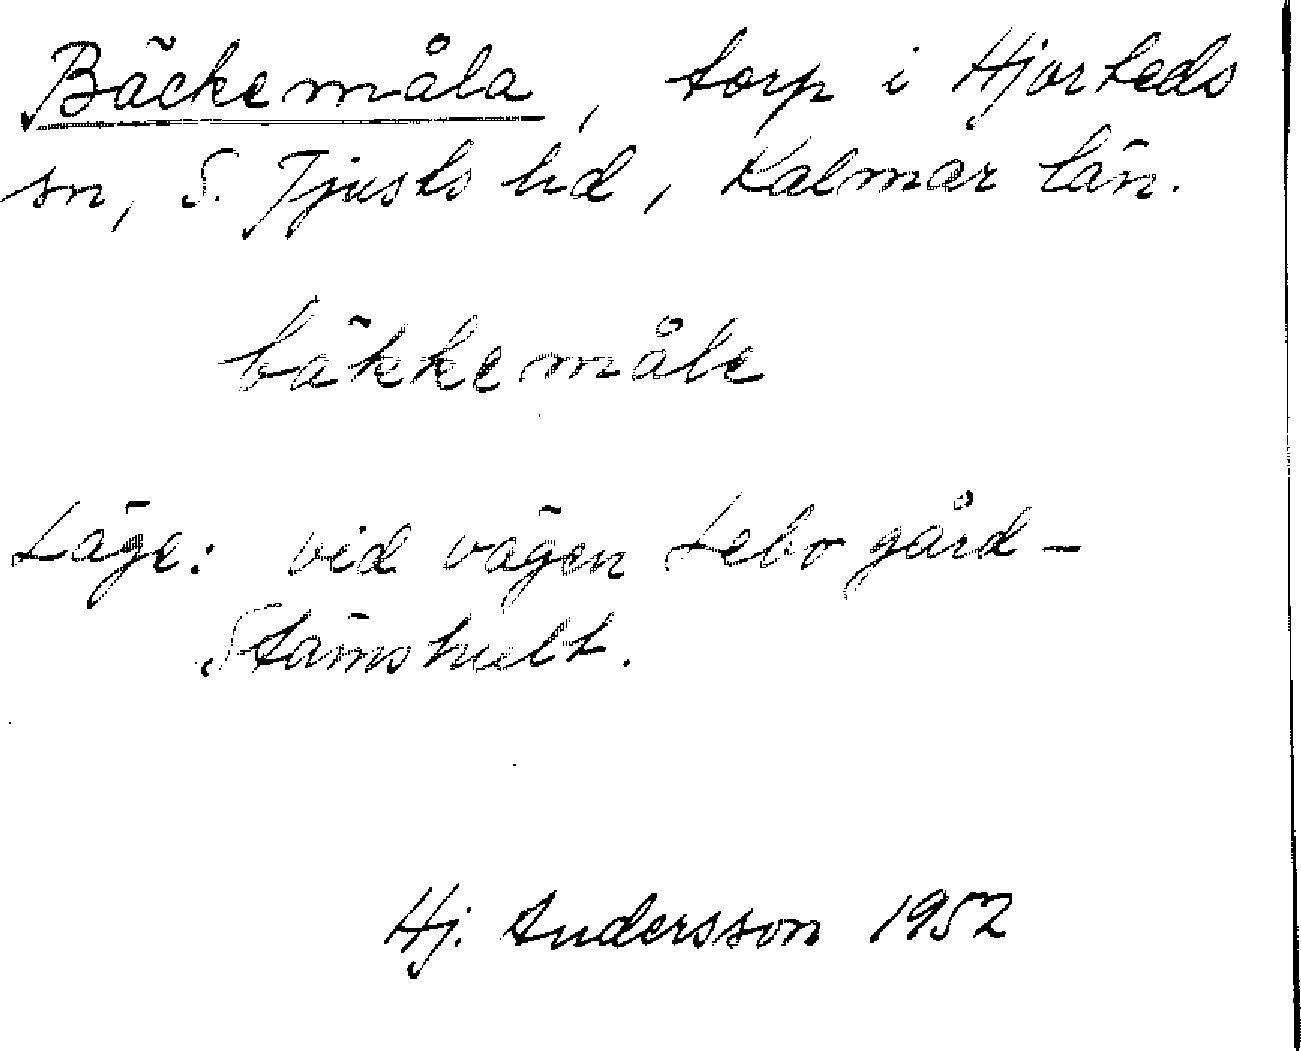 Bäckemåla, torp i Hjorteds
sn, S. Tjusts hd, Kalmar län.
bäkkemåle
Läge: vid vägen Lebo gård –
Stämshult.
Hj. Andersson 1952